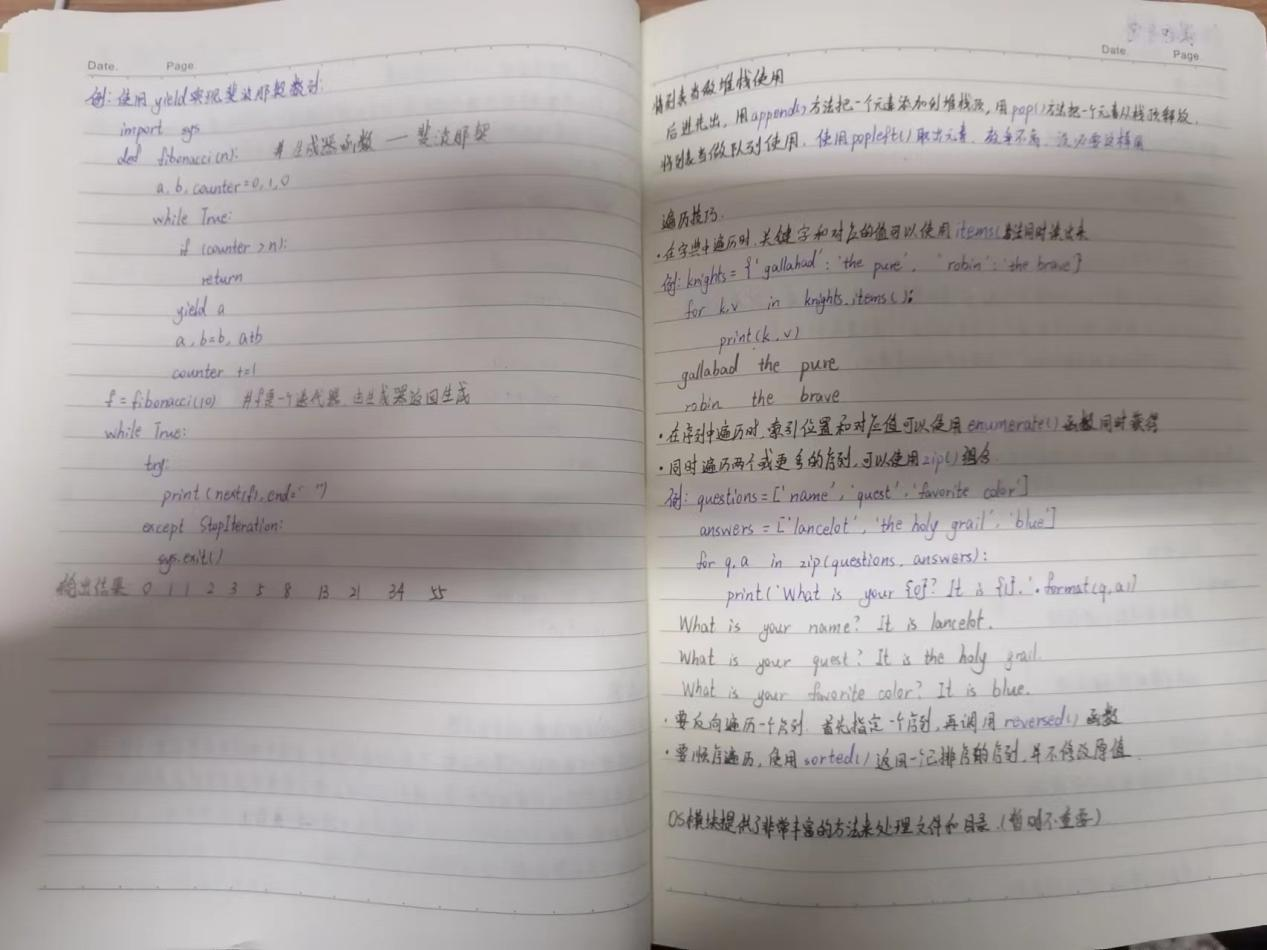 Date. Page
例:使用yield实现斐波那契数列:
import sys
def fibonacci(n): #生成器函数 — 斐波那契
a, b, counter = 0, 1, 0
while True:
if (counter > n):
return
yield a
a, b = b, a+b
counter += 1
f = fibonacci(10) #f是一个迭代器,由生成器返回生成
while True:
try:
print (next(f), end=" ")
except StopIteration:
sys.exit()
输出结果 0 1 1 2 3 5 8 13 21 34 55
Date. Page
将列表当做堆栈使用
后进先出,用append()方法把一个元素添加到堆栈顶,用pop()方法把一个元素从栈顶释放.
将列表当做队列使用,使用popleft()取出元素,效率不高,没必要这样用
遍历技巧.
·在字典中遍历时,关键字和对应的值可以使用items()方法同时读出来
例: knights = {'gallahad': 'the pure', 'robin': 'the brave'}
for k,v in knights.items():
print(k, v)
gallabad the pure
robin the brave
·在序列中遍历时,索引位置和对应值可以使用enumerate()函数同时获得
·同时遍历两个或更多的序列,可以使用zip()组合
例: questions = ['name', 'quest', 'favorite color']
answers = ['lancelot', 'the holy grail', 'blue']
for q, a in zip(questions, answers):
print('What is your {0}? It is {1}.'.format(q, a))
What is your name? It is lancelot.
What is your quest? It is the holy grail.
What is your favorite color? It is blue.
·要反向遍历一个序列,首先指定一个序列,再调用reversed()函数
·要顺序遍历,使用sorted()返回一个已排序的序列,并不修改原值
OS模块提供了非常丰富的方法来处理文件和目录.(暂时不重要)